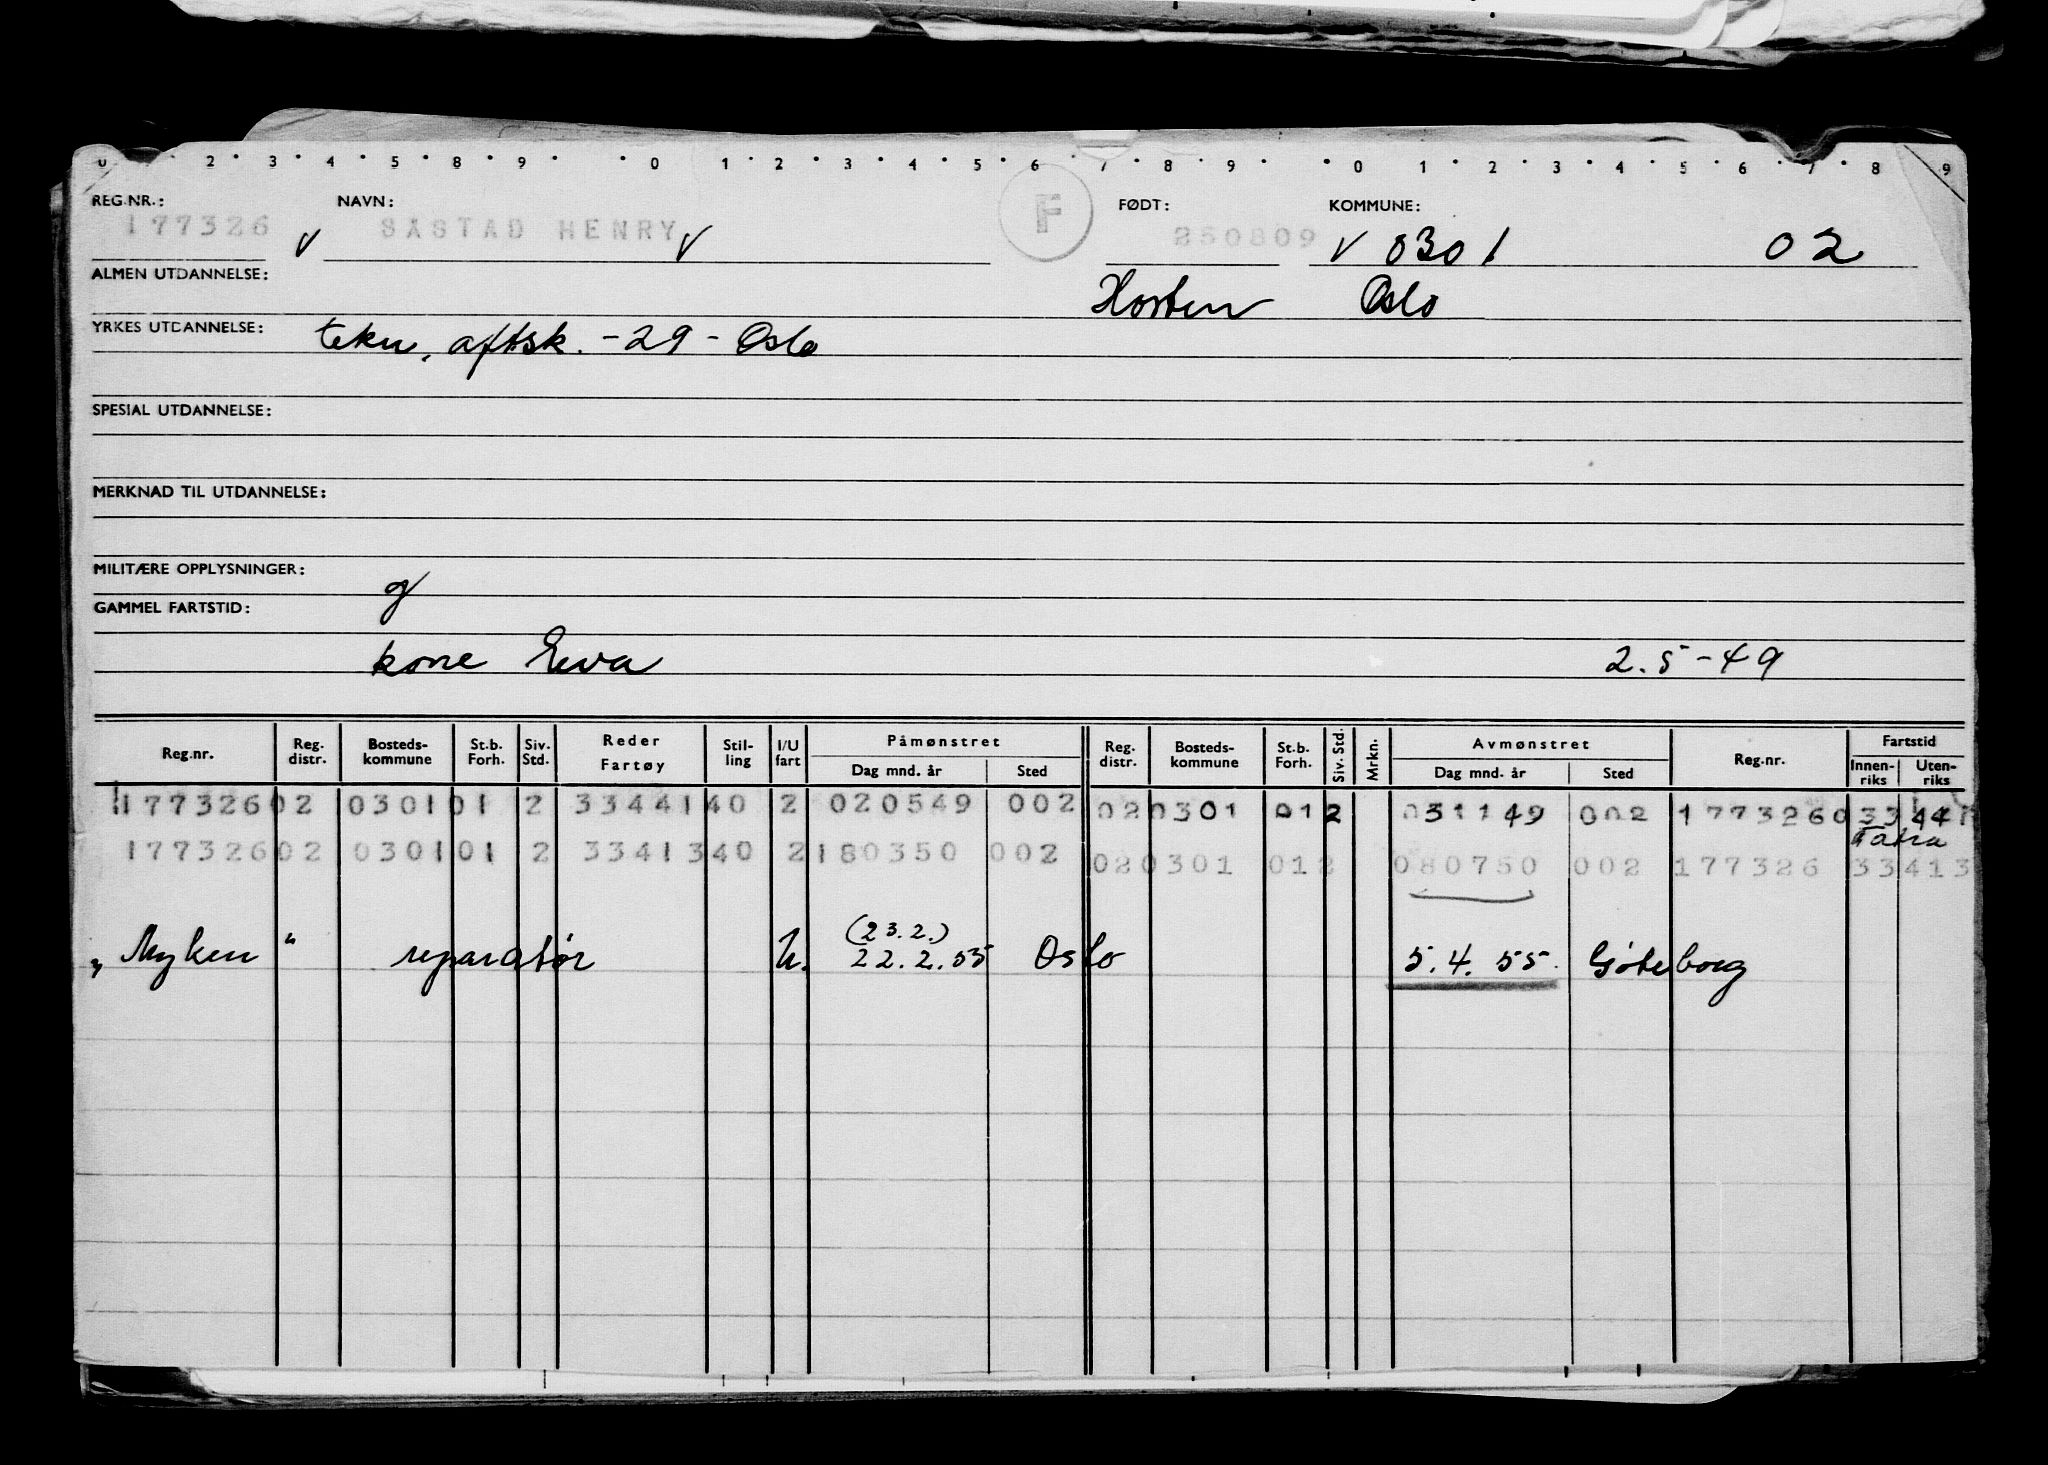 0 · 2 · 3 · 4 · 5 · 8 · 9 · · 0 · 1 · 2 · 3 · 4 · 5 · 6 · 7 · 8 · 9 · · 0 · 1 · 2 · 3 · 4 · 5 · 6 · 7 · 8 · 9
REG.NR.: NAVN: F FØDT: KOMMUNE:
177326 V SÅSTAD HENRY V 250809 V 0301 02
ALMEN UTDANNELSE: Horten Oslo
YRKES UTDANNELSE: tekn. aftsk. - 29 - Oslo
SPESIAL UTDANNELSE:
MERKNAD TIL UTDANNELSE:
MILITÆRE OPPLYSNINGER:
GAMMEL FARTSTID:
kone Eva 2.5-49
Reg.nr. Reg. distr. Bosteds-kommune St.b. Forh. Siv. Std. Reder Fartøy Stil-ling I/U fart Påmønstret Dag mnd. år Sted Reg. distr. Bosteds-kommune St.b. Forh. Siv. Std. Mrkn. Avmønstret Dag mnd. år Sted Reg.nr. Fartstid Innen-riks Uten-riks
177326 02 0301 01 2 33441 40 2 020549 002 02 0301 01 2 031149 002 177326 0 33441
Tatra
177326 02 0301 01 2 33413 40 2 180350 002 02 0301 01 2 080750 002 177326 33413
(23.2.)
„Myken" reparatør U. 22.2.55 Oslo 5.4.55. Göteborg